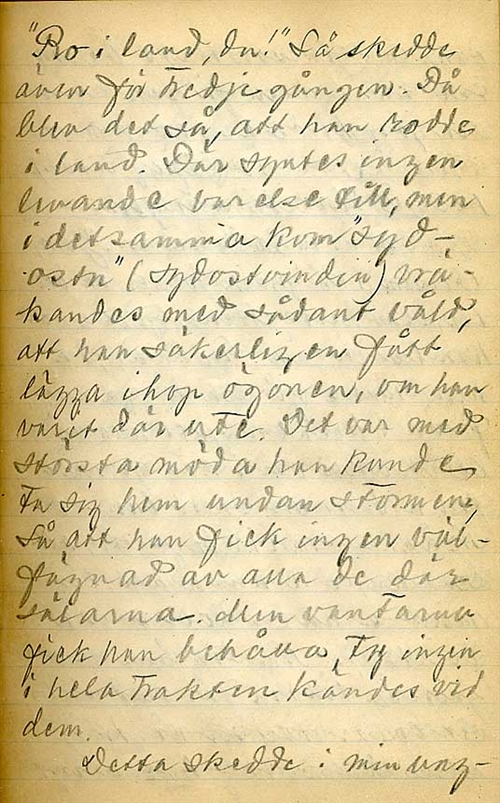 "Ro i land, du!" Så skedde
även för tredje gången. Då
blev det så, att han rodde
i land. Där syntes ingen
levande varelse till, men
i detsamma kom "syd-
ostn" (sydostvinden) vrå-
kandes med sådant våld,
att han säkerligen fått
lägga ihop ögonen, om han
varit där ute. Det var med
största möda han kunde
ta sig hem undan stormen,
så att han fick ingen väl-
fägnad av alla de där
sälarna. Men vantarna
fick han behålla, ty ingen
i hela trakten kändes vid
dem.
Detta skedde i min ung-